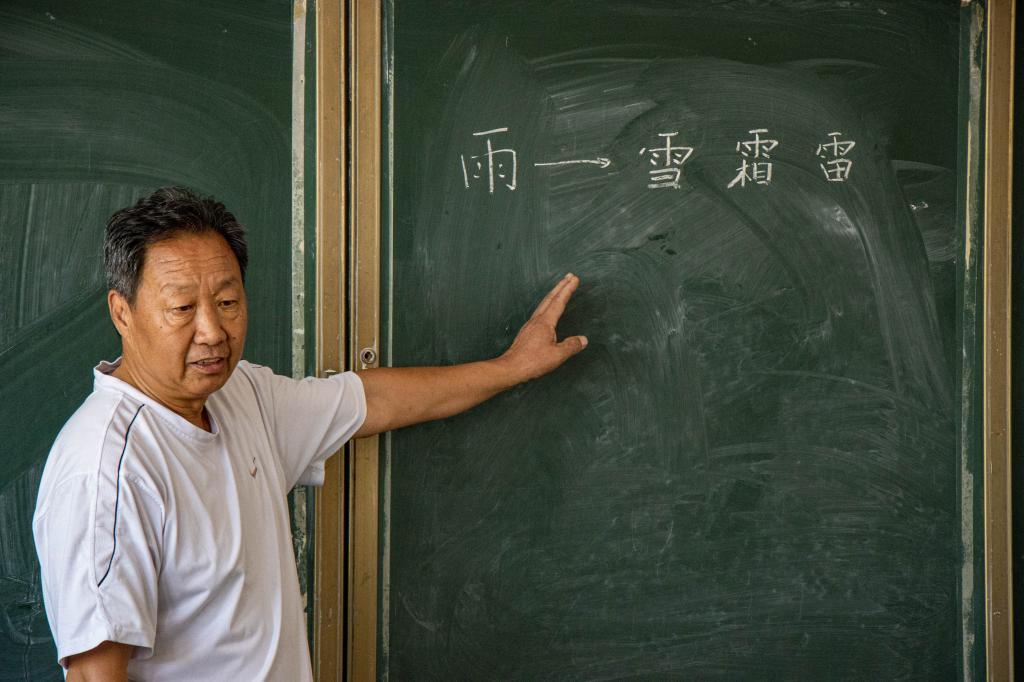 雨→雪 霜 雷